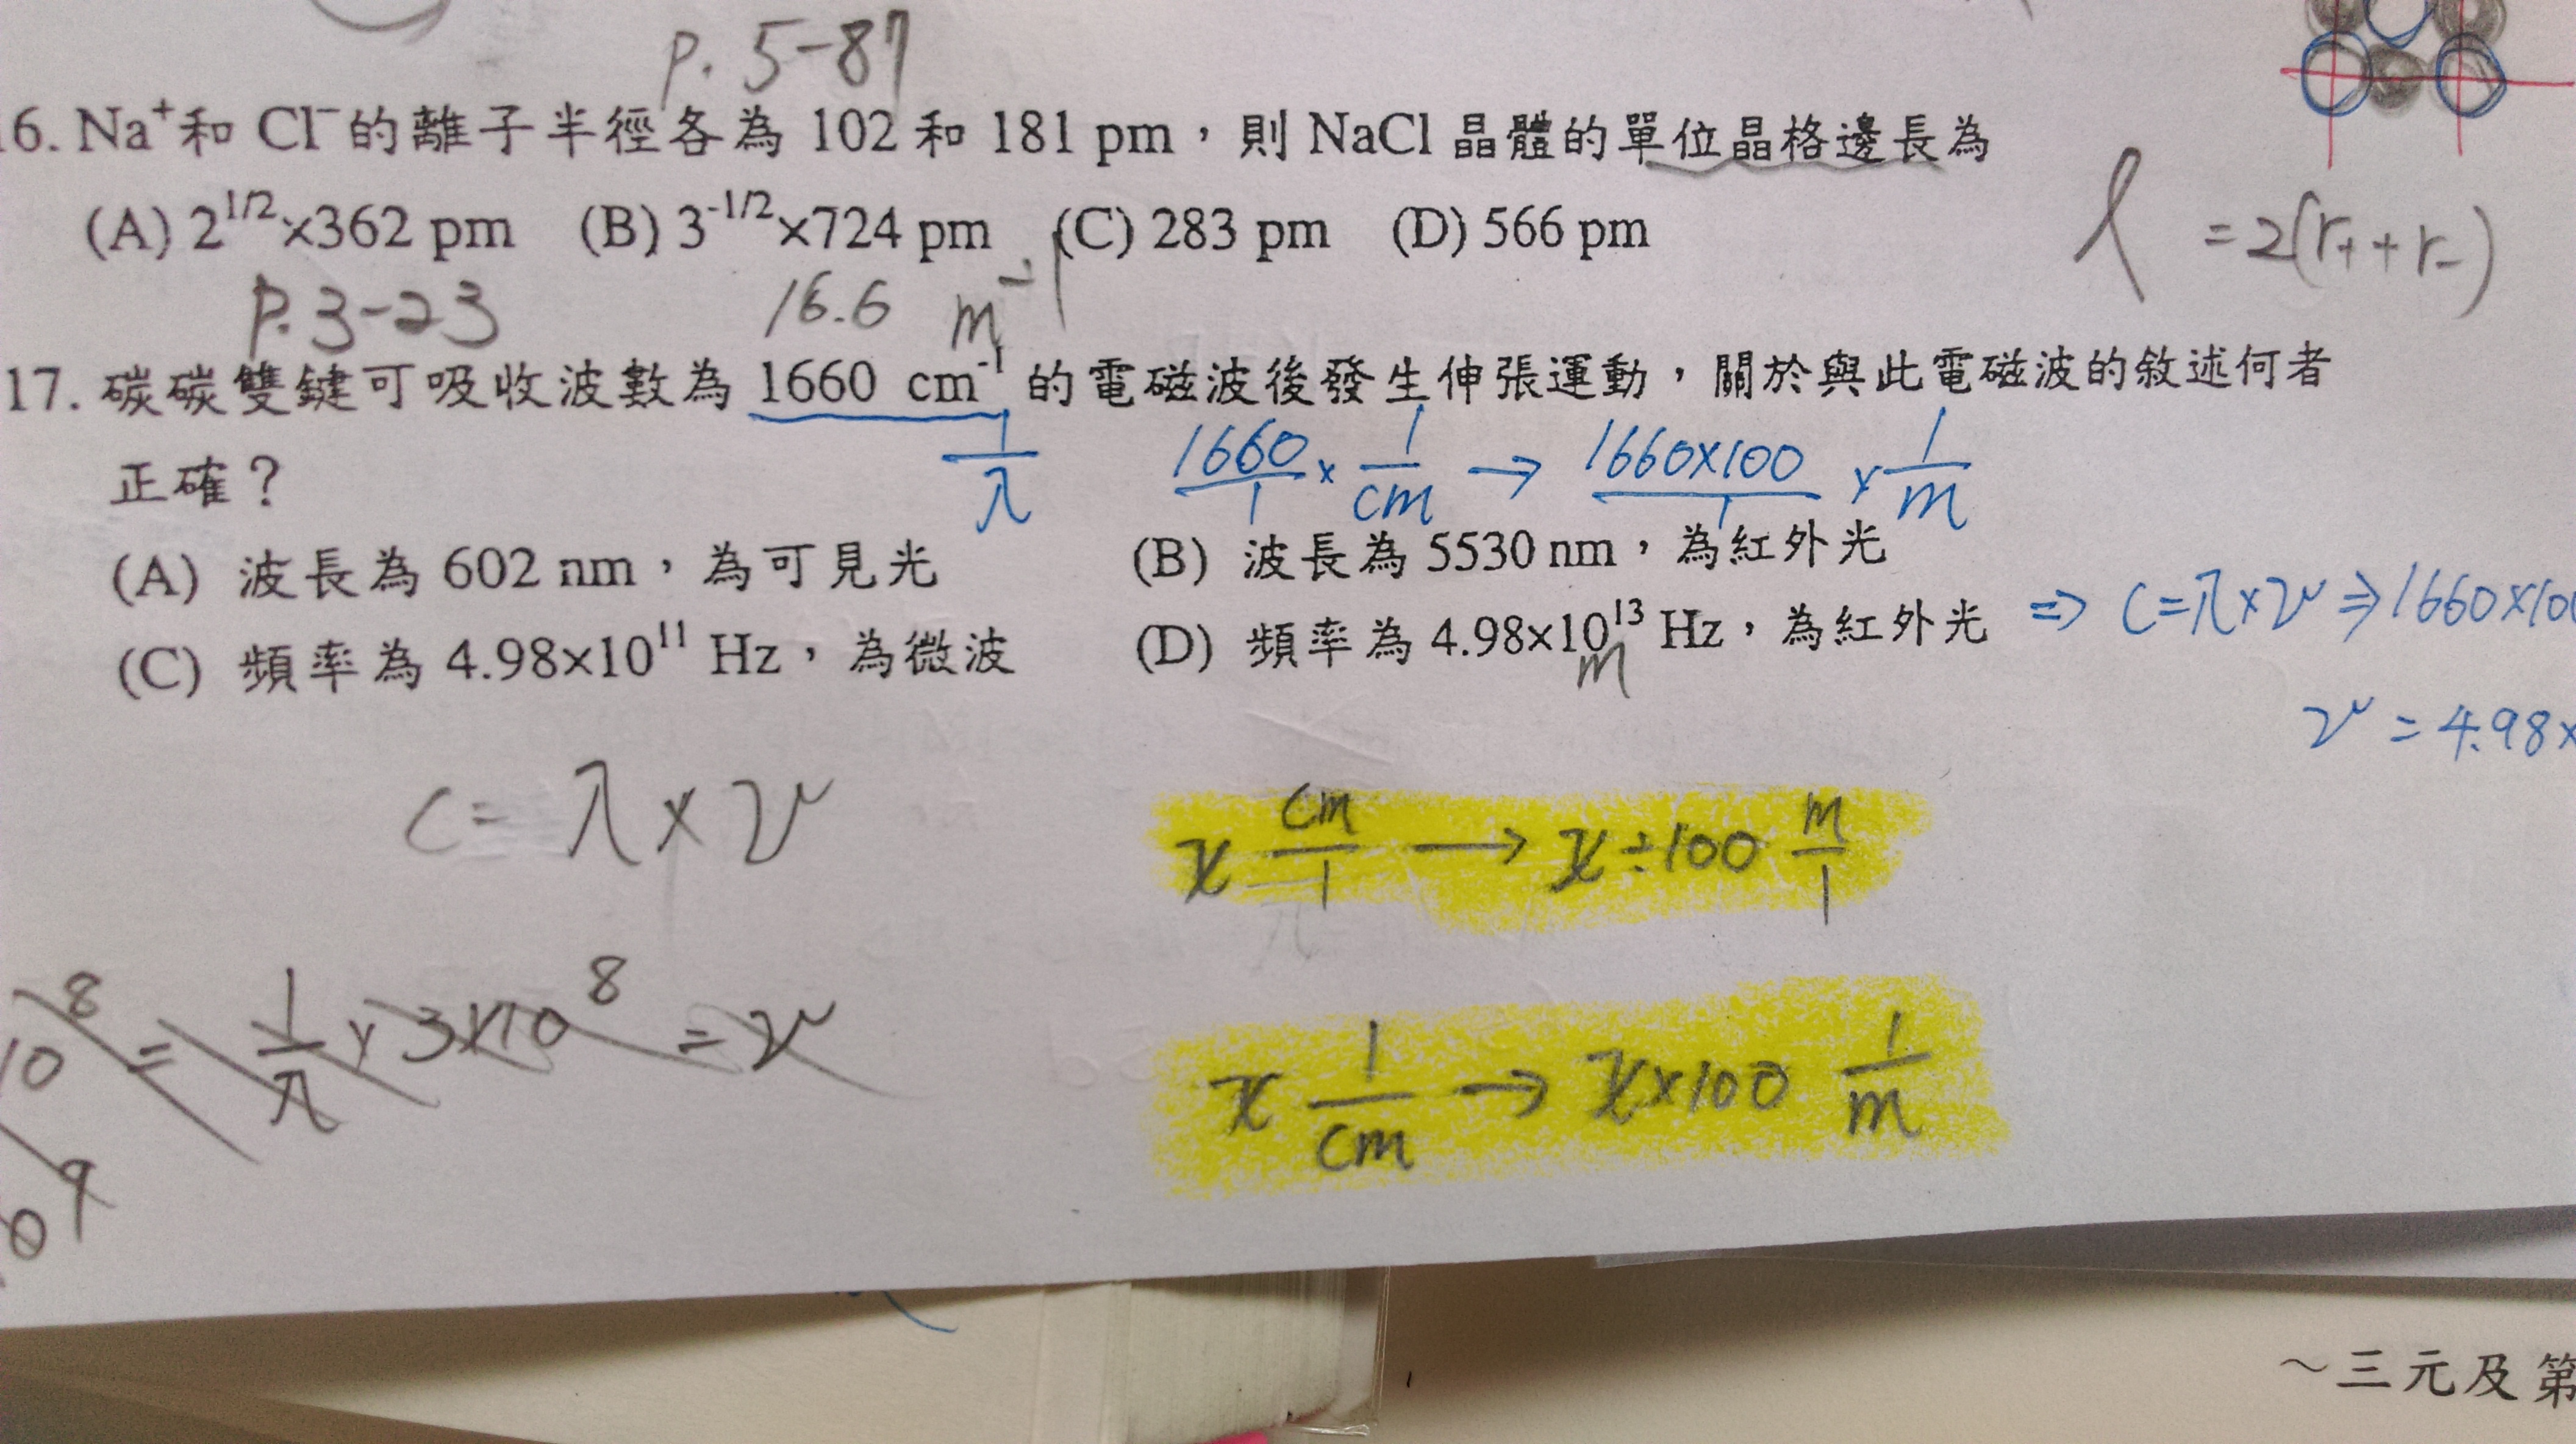 p. 5-87
16. Na⁺和 Cl⁻的離子半徑各為 102 和 181 pm，則 NaCl 晶體的單位晶格邊長為
(A) 2^{1/2}×362 pm (B) 3^{-1/2}×724 pm (C) 283 pm (D) 566 pm
l = 2(r₊+r₋)
P. 3-23 16.6 m⁻¹
17. 碳碳雙鍵可吸收波數為 1660 cm⁻¹ 的電磁波後發生伸張運動，關於與此電磁波的敘述何者
正確？
1/λ 1660/1 × 1/cm → 1660×100/1 × 1/m
(A) 波長為 602 nm，為可見光 (B) 波長為 5530 nm，為紅外光
⇒ C=λ×ν ⇒ 1660×10
(C) 頻率為 4.98×10¹¹ Hz，為微波 (D) 頻率為 4.98×10¹³ Hz，為紅外光
m
ν = 4.98×
C = λ × ν
x cm/1 → x÷100 m/1
10⁸ = 1/λ × 3×10⁸ = ν
x 1/cm → x×100 1/m
～三元及第